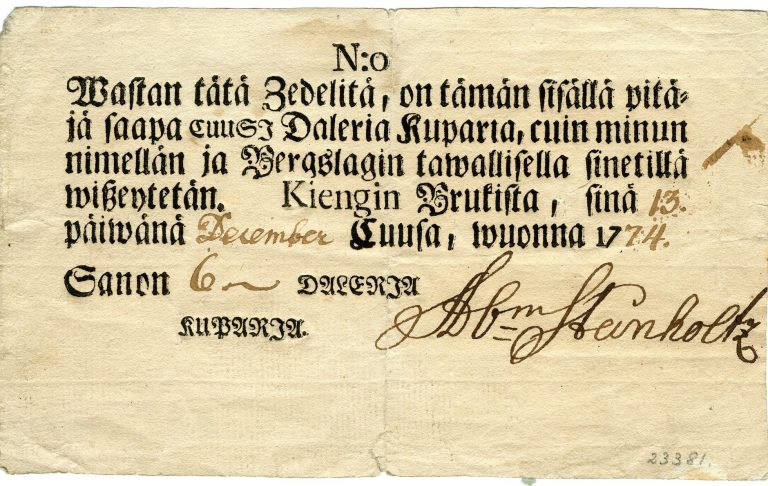 N:o
Wastan tätä Zedelitä, on tämän sisällä pitä-
jä saapa CUUSJ Daleria Kuparia, cuin minun
nimellän ja Bergslagin tawallisella sinetillä
wißeytetän. Kiengin Brukista, sinä 13.
päiwänä December Cuusa, wuonna 1774.
Sanon 6 DALERJA
KUPARJA.
Abm Steinholtz
23381.